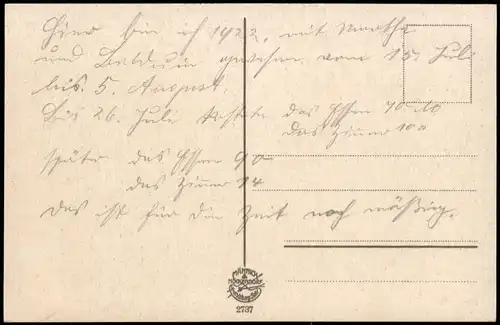 Hier bin ich 1922, mit Martha
und Balduin gewesen vom 15. Juli
bis 5. August.
Bis 26. Juli kostete das Essen 70 M
das Zimmer 10 "
später das Essen 90
das Zimmer 14
das ist für die Zeit noch mäßig.
2737